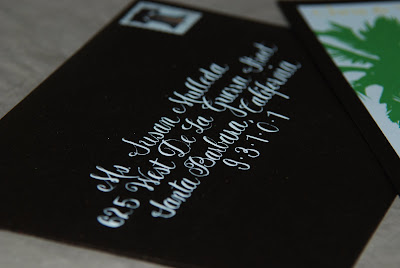 Ms. Susan Malleta
625 West De La Guerra Street
Santa Barbara, California
9·3·1·0·1